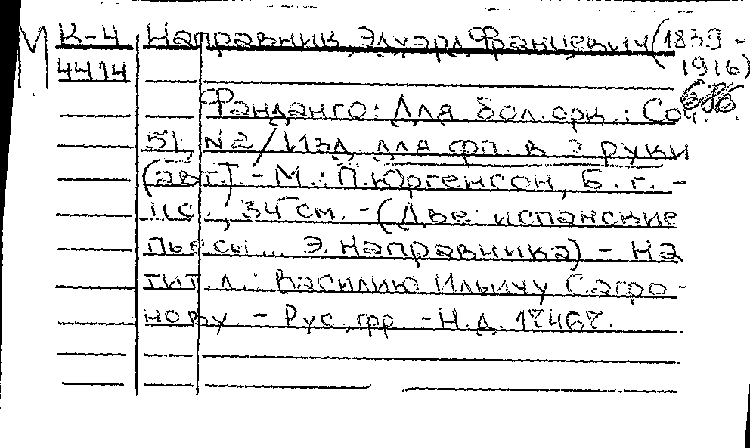 М К-4 Направник, Эдуард Францевич (1839-
4414 1916)
Фанданго: Для бол. орк.: Соч.
51, N2 / Изд. для фп. в 3 руки
(авт.) - М.: П. Юргенсон, Б. г. -
11 с., 34 см. - (Две испанские
пьесы ... Э. Направника) - На
тит. л.: Василию Ильичу Сафо-
нову - Рус., фр. - Н. д. 17467.